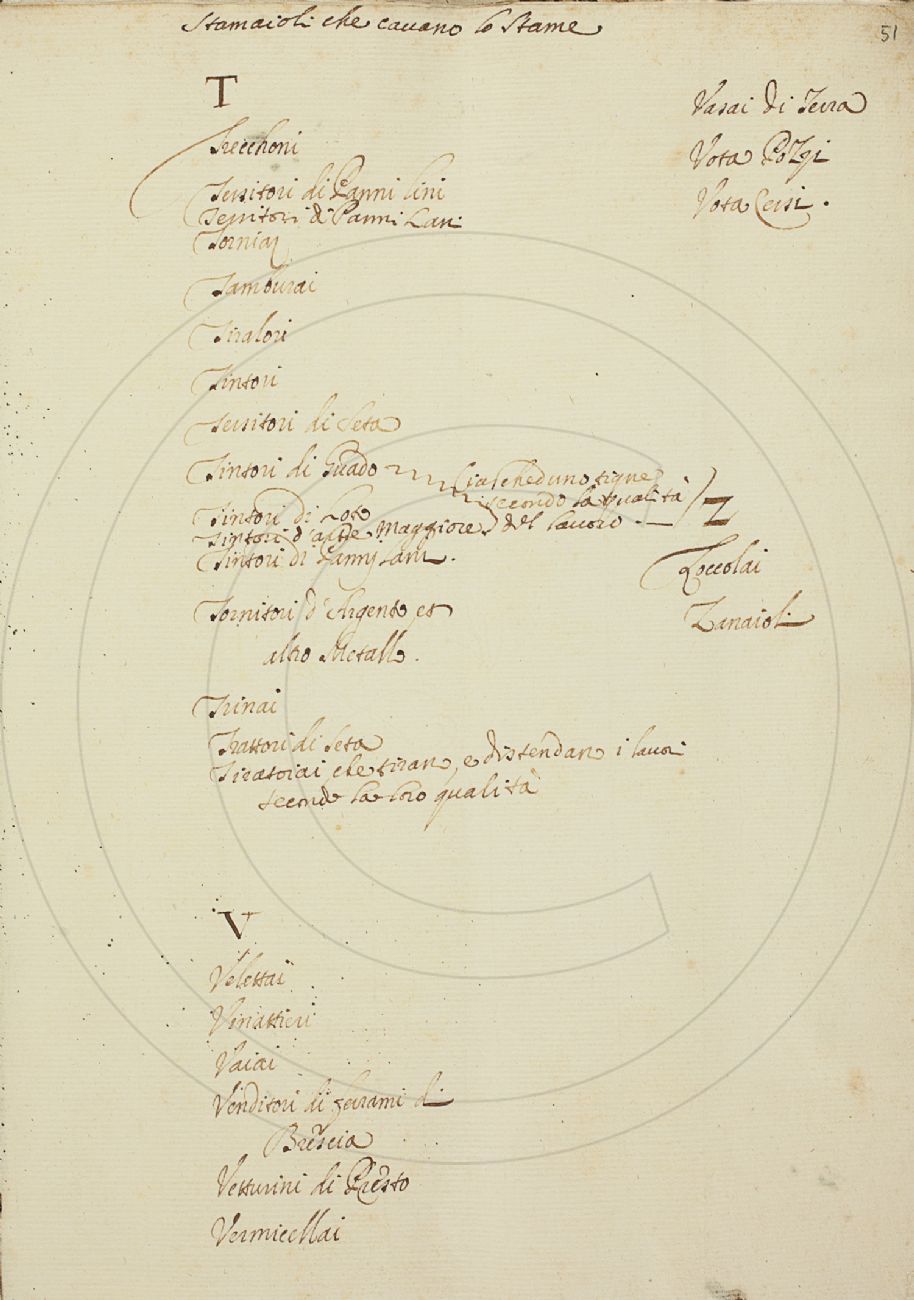 Stamaioli che cavano lo Stame
51
T
Trecchoni
Tessitori di Panni lini
Tessitori di Panni Lani
Torniai
Tamburai
Tiralori
Tintori
Tessitori di Seta
Tintori di Guado
Ciascheduno tigne
secondo la qualità
del lavoro.
Tintori di Loto
Tintori d'arte Maggiore
Tintori di Panny Lani.
Tornitori d'Argento et
altro Metallo.
Trinai
Trattori di Seta
Tiratoiai che tirano, e distendano i lavori
secondo la loro qualità
V
Velettai
Vinattieri
Vaiai
Venditori di ferrami di
Brescia
Vetturini di Presto
Vermicellai
Vasai di Terra
Vota Pozzi
Vota Cessi.
Z
Zoccolai
Zanaioli